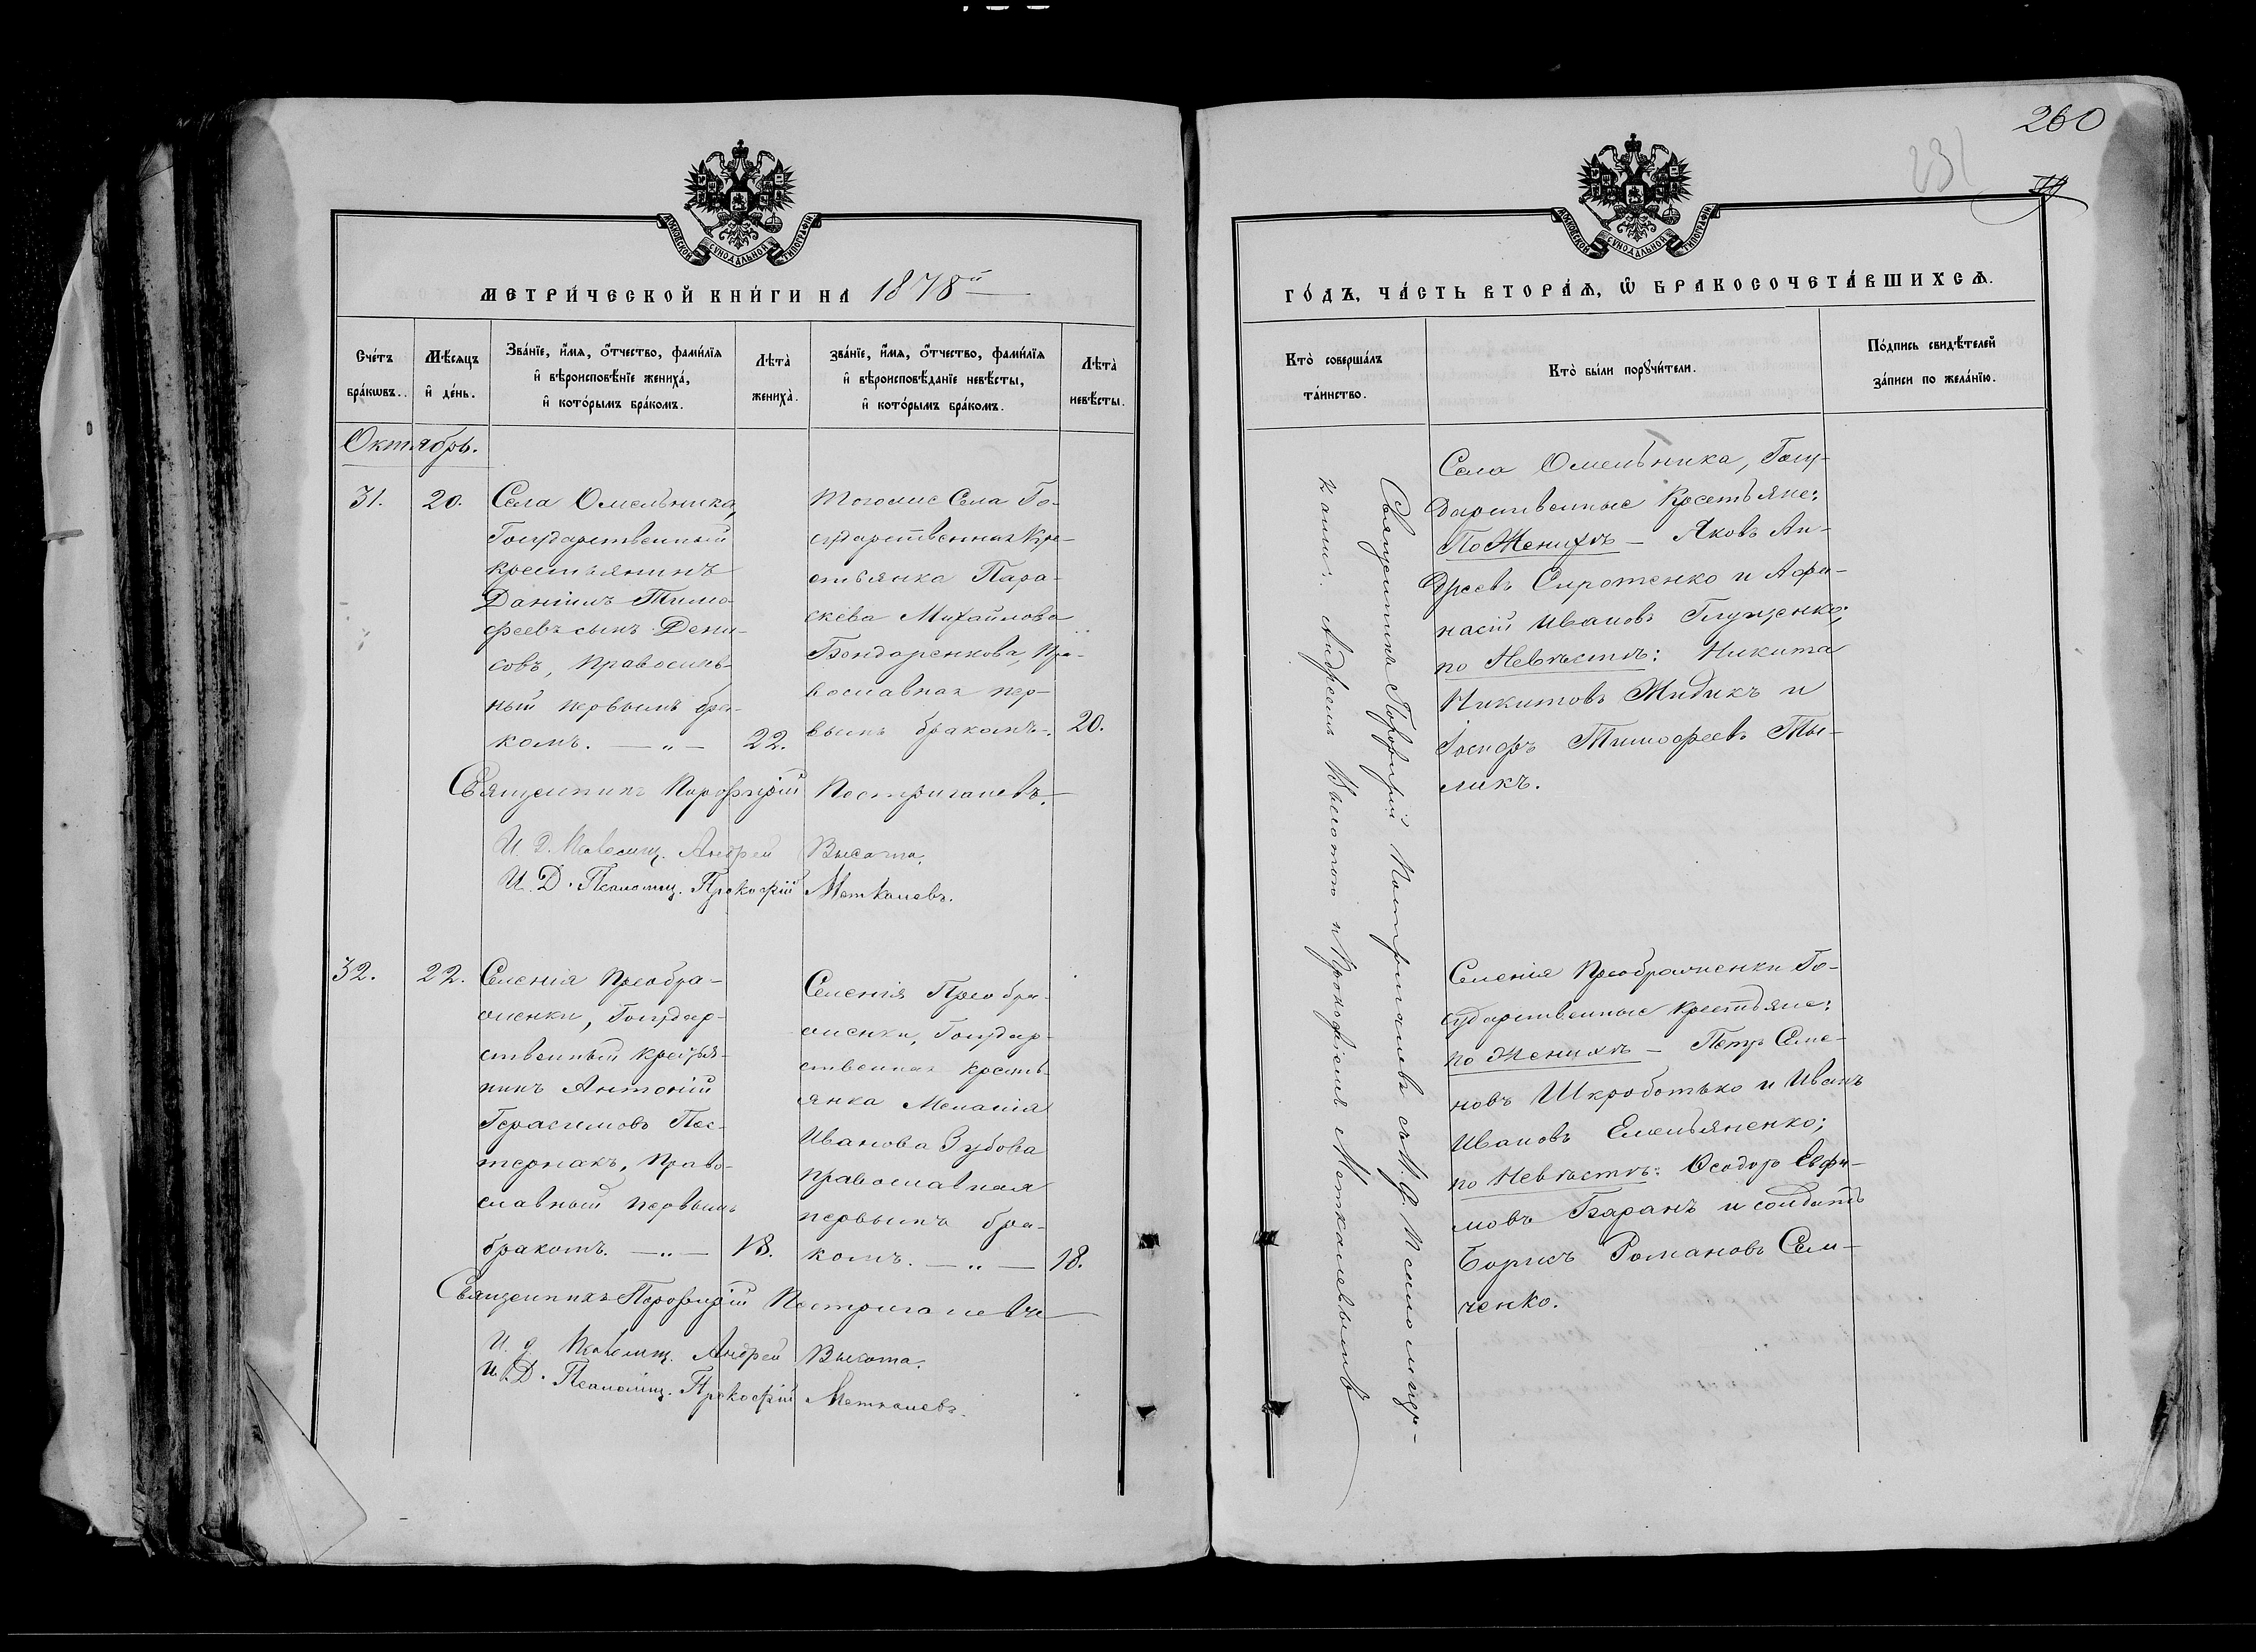 260
231
МОСКОВСКОЙ СѴНОДАЛЬНОЙ ТИПОГРАФІИ
МЕТРИ́ЧЕСКОЙ КНИ́ГИ НА 1878й
Сче́тъ бра́кѡвъ.
Мѣ́сяцъ и҆ де́нь.
Зва́нїе, и҆́мѧ, ѻ҆́тчество, фами́лїѧ
и҆ вѣроисповѣ́нїе жениха̀,
и҆ кото́рымъ бра́комъ.
Лѣта̀ жениха̀.
зва́нїе, и҆́мѧ, ѻ҆́тчество, фами́лїѧ
и҆ вѣроисповѣ́данїе невѣ́сты,
и҆ кото́рымъ бра́комъ.
Лѣта̀ невѣ́сты.
Октябрь.
31.
20.
Села Омельника,
Государственный
крестьянинъ
Даніилъ Тимо
феевъ сынъ Дени-
совъ, православ-
ный первымъ бра-
комъ. — „ —
22.
Тогоже Села Го-
сударственная Кре-
стьянка Пара-
скева Михайлова
Бондаренкова, Пра-
вославная пер-
вымъ бракомъ.
20.
Священникъ Порфирій Постригачевъ.
И. Д. Псаломщ. Андрей Высота.
И. Д. Псаломщ. Прокофій Меткалевъ.
32.
22.
Селенія Преобра-
женки, Государ-
ственный крестья-
нинъ Антоній
Герасимовъ Пас-
тернакъ, Право-
славный первымъ
бракомъ. — „ —
18.
Селенія Преобра-
женки, Государ-
ственная кресть-
янка Меланія
Иванова Зубова
православная
первымъ бра-
комъ. — „ —
18.
Священникъ Порфирій Постригачевъ
И. д. Псаломщ. Андрей Высота.
И. Д. Псаломщ. Прокофій Меткалевъ.
МОСКОВСКОЙ СѴНОДАЛЬНОЙ ТИПОГРАФІИ
ГО́ДЪ, ЧА́СТЬ ВТОРА́Ѧ, Ѽ БРАКОСОЧЕТА́ВШИХСѦ.
Кто̀ соверша́лъ
та́инство.
Кто̀ бы́ли порꙋчи́тели.
По́дпись свидѣ́телей
за́писи по жела́нїю.
Священникъ Порфирій Постригачевъ съ И. Д. Псаломщи-
ками: Андреемъ Высотою и Прокофіемъ Меткалевымъ
Села Омельника, Госу-
дарственные Крестьяне:
По Женихѣ — Яковъ Ан-
дреевъ Сиротенко и Афа-
насій Ивановъ Глущенко;
по Невѣстѣ: Никита
Никитовъ Жидикъ и
Іосифъ Тимофеевъ Ты-
ликъ.
Селенія Преображенки Го-
сударственные крестьяне:
по Женихѣ — Петръ Семе-
новъ Шкроботько и Иванъ
Ивановъ Емельяненко;
по Невѣстѣ: Ѳеодоръ Евфи-
мовъ Баранъ и солдатъ
Борисъ Романовъ Сем-
ченко.